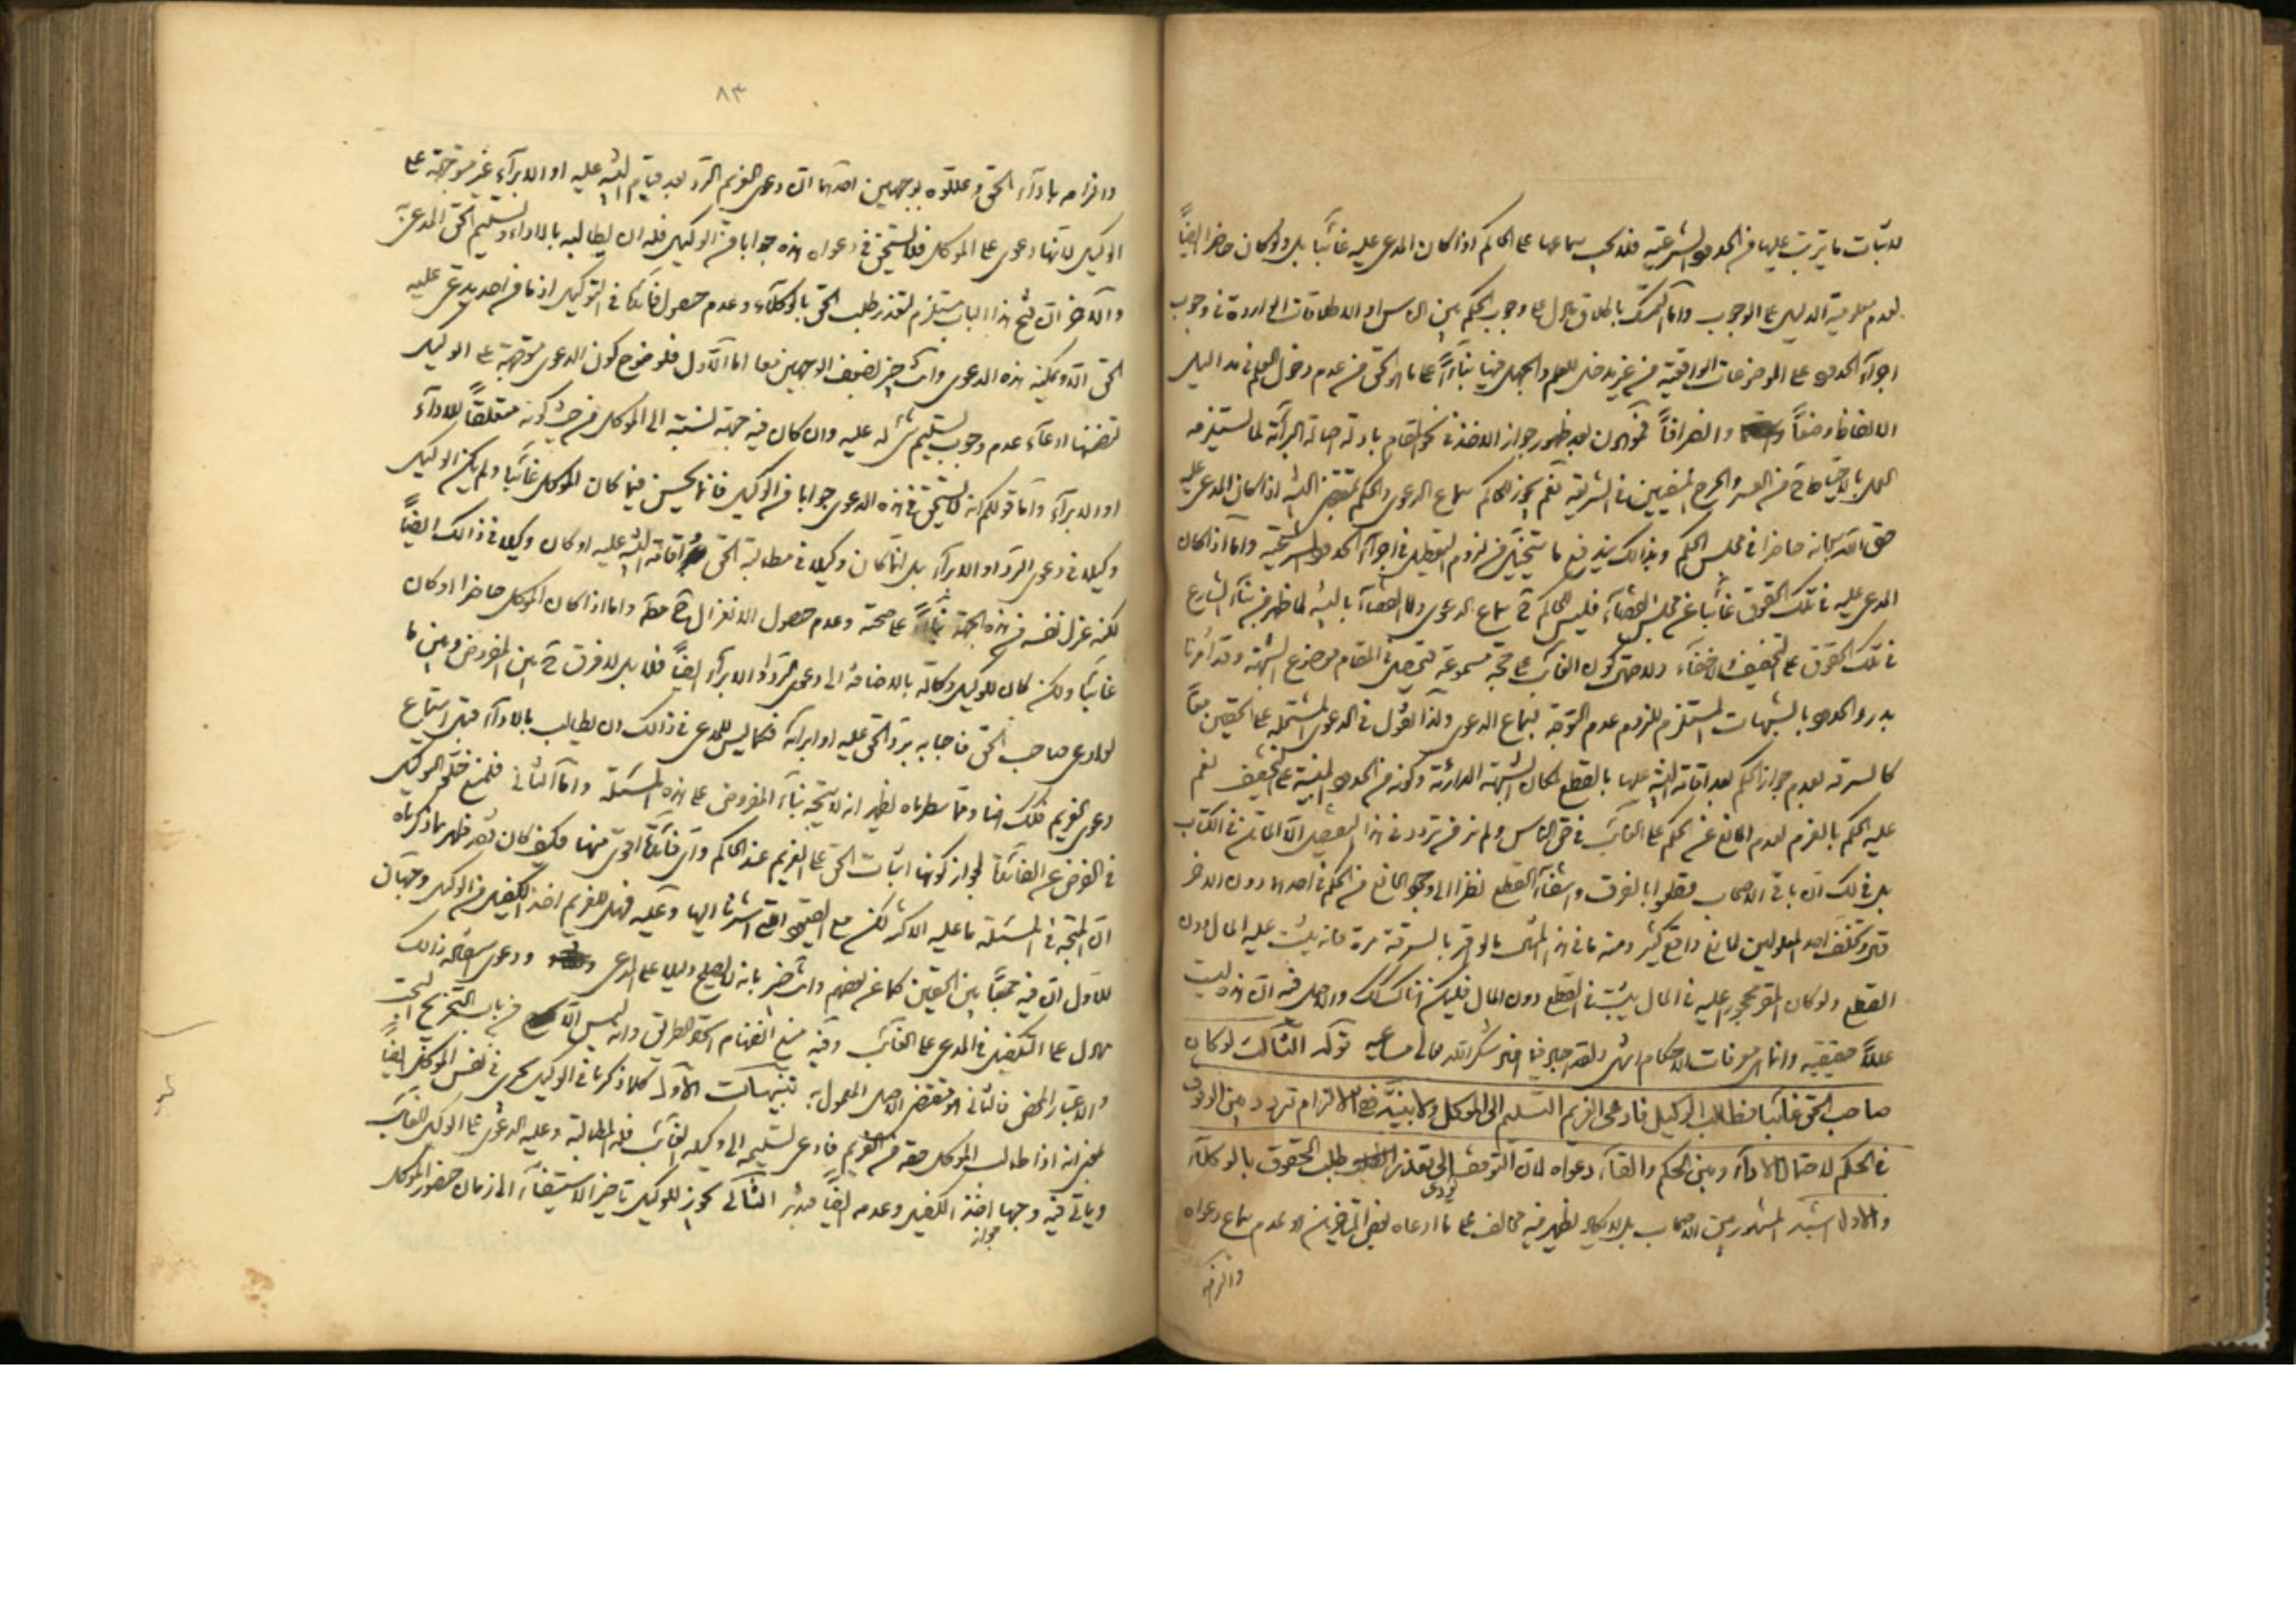 لاثبات ما يترتب عليها من الحدود الشرعية فلا يجب سماعها على الحاكم اذا كان المدعى عليه غائبا بل ولو كان حاضرا ايضاً
لعدم معلومية الدليل على الوجوب وأما التمسك باطلاق ما دل على وجوب الحكم بين الناس او الاطلاقات الواردة في وجوب
اجراء الحدود على الموضوعات الواقعية من غير مدخل للعلم والجهل فيها بناءاً على ما هو الحق من عدم دخول العلم في مداليل
الالفاظ وضعاً وانصرافاً
العمل بالاحتياط من العسر والحرج المنفيين في الشريعة نعم يجوز للحاكم سماع الدعوى والحكم بمقتضى البينة اذا كان المدعى عليه
حق الله سبحانه حاضرا في مجلس الحكم وبذلك يندفع ما يتخيل من لزوم التعطيل في اجراء الحدود الشرعية وأما اذا كان
المدعى عليه في تلك الحقوق غائبا عن مجلس القضاء فليس للحاكم سماع الدعوى ولا القضاء بالبينة لما ظهر من بناء الشارع
في تلك الحقوق على التخفيف والاخفاء ولاحتمال كون الغائب على حجة مسموعة فيحصل في المقام موضوع الشبهة وقد أمرنا
بدرء الحدود بالشبهات المستلزم للزوم عدم التوجه لسماع الدعوى وكذا القول في الدعوى المشتملة على الحقين معاً
كالسرقة لعدم جواز الحكم بعد اقامة البينة عليها بالقطع لمكان الشبهة الدارئة وكونه من الحدود المبنية على التخفيف نعم
عليه الحكم بالغرم لعدم المانع عن الحكم على الغائب في حق الناس ولم نر من تردد في هذا التفصيل الا الماتن في الكتاب
بل في ذلك ان باقي الاصحاب قطعوا بالفرق وانتفاء القطع نظرا الى وجود المانع من الحكم في احدهما دون الاخر
قيل وتخلف احد المعلولين لمانع واقع كثير ومنه ما في هذا المثال ما لو اقر بالسرقة مرة فانه يثبت عليه المال دون
القطع ولو كان المقر محجور عليه في المال يثبت القطع دون المال فليكن هنا كذلك والاصل فيه ان هذه ليست
عللاً حقيقية وانما هي معرفات للاحكام انتهى ولقد اجاد فيما افاد شكر الله تعالى مساعيه قوله الثالث لو كان
صاحب الحق غائبا فطالب الوكيل فادعى الغريم التسليم الى الموكل ولا بينة ففي الالزام تردد بين الوقوف
في الحكم لاحتمال الاداء وبين الحكم والغاء دعواه لان التوقف يؤدى الى تعذر طلب الحقوق بالوكلاء
والاول اشبه المشهور بين الاصحاب بل لا يكاد يظهر فيه مخالف على ما ادعاه بعض المتأخرين هو عدم سماع دعواه
والزامه
٨٣
والزامه باداء الحق وعللوه بوجهين احدهما ان دعوى الغريم الرد بعد قيام البينة عليه او الابراء غير متوجهة على
الوكيل لانها دعوى على الموكل فلا يستحق في دعواه هذه جوابا من الوكيل فله ان يطالبه بالاداء وتسليم الحق المدعى به
والآخر ان فتح هذا الباب يستلزم تعذر طلب الحق بالوكلاء وعدم حصول فائدة في التوكيل اذ ما من احد يدعى عليه
الحق الا ويمكنه هذه الدعوى وانت خبير بضعف الوجهين معا اما الاول فلوضوح كون الدعوى متوجهة على الوكيل
لتضمنها ادعاء عدم وجوب تسليم شئ له عليه وان كان فيه جهة نسبة الى الموكل من حيث كونه متعلقاً للاداء
او الابراء واما قولكم انه لا يستحق في هذه الدعوى جوابا من الوكيل فانما يحسن فيما كان الموكل غائبا ولم يكن الوكيل
وكيلا في دعوى الرد او الابراء بل انما كان وكيلا في مطالبة الحق واقامة البينة عليه او كان وكيلا في ذلك ايضاً
لكنه عزل نفسه من هذه الجهة بناءاً على صحته وعدم حصول الانعزال واما اذا كان الموكل حاضرا او كان
غائبا ولكن كان للوكيل وكالة بالاضافة الى دعوى الرد والابراء ايضاً فلا بل لا فرق بين المفروض وبين ما
لو ادعى صاحب الحق فاجابه برد الحق عليه او ابرائه فكما ليس للمدعى في ذلك ان يطالب بالاداء قبل استماع
دعوى الغريم فكذلك هنا ومما سطرناه يظهر انه لا يتجه بناء المفروض على هذه المسئلة واما الثاني فلمنع خلو التوكيل
في الفرض عن الفائدة لجواز كونها اثبات الحق على الغريم عند الحاكم واي فائدة اقوى منها وكيف كان فقد ظهر بما ذكرناه
ان المتجه في المسئلة ما عليه الاكثر لكن مع القيود التي اشرنا اليها وعليه فهل للغريم اخذ الكفيل من الوكيل وجهان
للاول ان فيه جمعاً بين الحقين كما عن بعضهم وانت خبير بانه لا يصلح دليلا على المدعى ودعوى استفادة ذلك
مما دل على التكفيل في المدعى على الغائب وفيه منع انفهام اتحاد الطريق وانه ليس الا من باب التخريج البحت
والاعتبار المحض فالثاني هو مقتضى الاصل المعول به تنبيهات الاول كلما ذكرنا في الوكيل يجري في نفس الموكل ايضاً
بمعنى انه اذا طالب الموكل حقه من الغريم فادعى تسليمه الى وكيله الغائب فله المطالبة وعليه الدعوى على الوكيل الغائب
ويأتي فيه وجها اخذ الكفيل وعدمه ايضاً فتدبر الثاني يجوز للوكيل تأخير الاستيفاء الى زمان حضور الموكل
لجواز